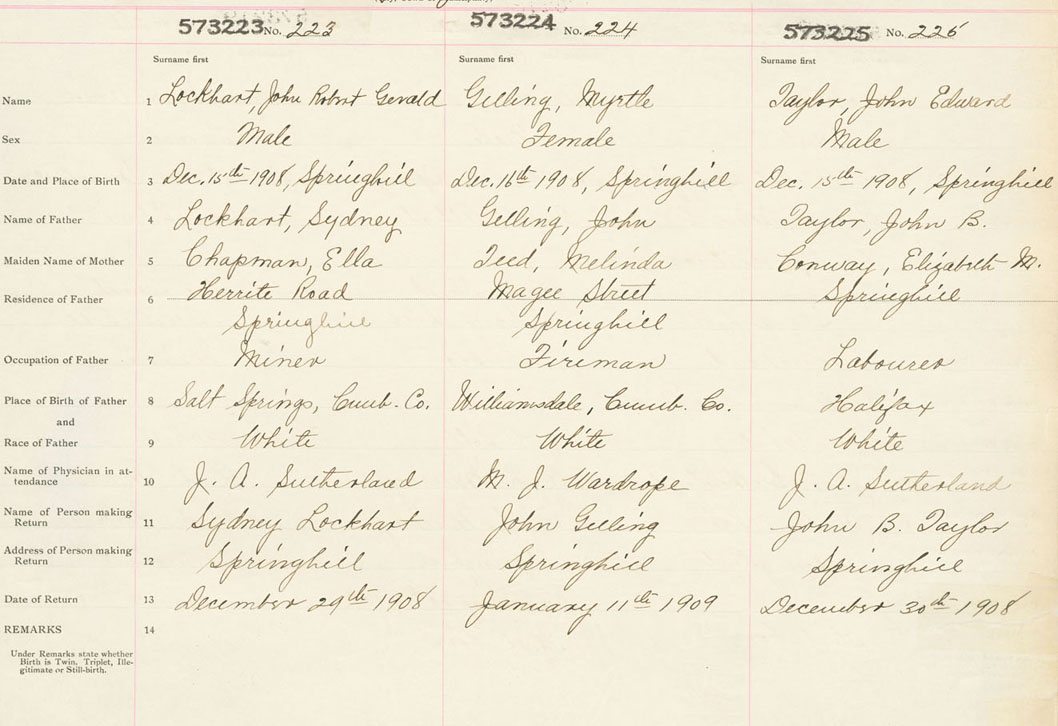 573223 No. 223 573224 No. 224 573225 No. 225
Surname first Surname first Surname first
Name 1 Lockhart, John Robert Gerald Gelling, Myrtle Taylor, John Edward
Sex 2 Male Female Male
Date and Place of Birth 3 Dec. 15th 1908, Springhill Dec. 16th 1908, Springhill Dec. 15th 1908, Springhill
Name of Father 4 Lockhart, Sydney Gelling, John Taylor, John B.
Maiden Name of Mother 5 Chapman, Ella Teed, Melinda Conway, Elizabeth M.
Residence of Father 6 Herrite Road Magee Street Springhill
Springhill Springhill
Occupation of Father 7 Miner Fireman Labourer
Place of Birth of Father 8 Salt Springs, Cumb. Co. Williamsdale, Cumb. Co. Halifax
and
Race of Father 9 White White White
Name of Physician in at-
tendance 10 J. A. Sutherland M. J. Wardrope J. A. Sutherland
Name of Person making
Return 11 Sydney Lockhart John Gelling John B. Taylor
Address of Person making
Return 12 Springhill Springhill Springhill
Date of Return 13 December 29th 1908 January 11th 1909 December 30th 1908
REMARKS 14
Under Remarks state whether
Birth is Twin, Triplet, Ille-
gitimate or Still-birth.